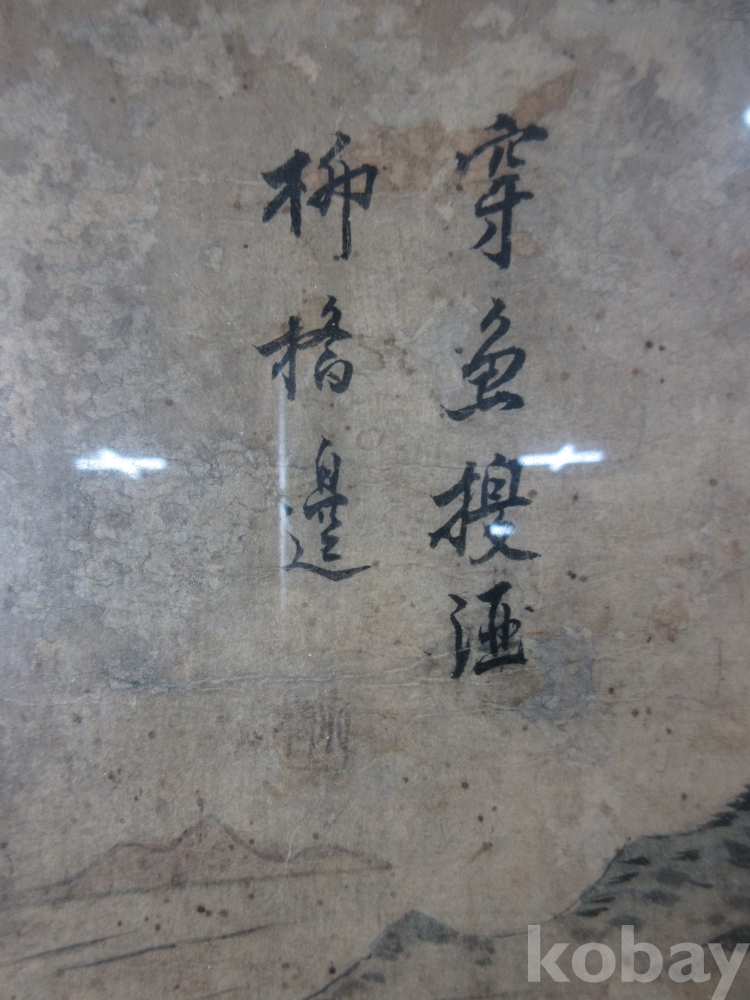 穿魚換酒
柳橋邊
kobay